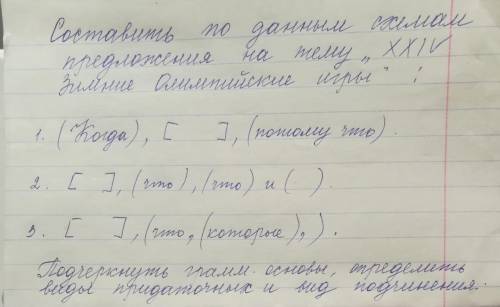 Составить по данным схемам
предложения на тему „XXIV
Зимние Олимпийские игры":
1. (Когда), [ ], (потому что).
2. [ ], (что), (что) и ( ).
3. [ ], (что, (которые), ).
Подчеркнуть грамм. основы, определить
виды придаточных и вид подчинения.